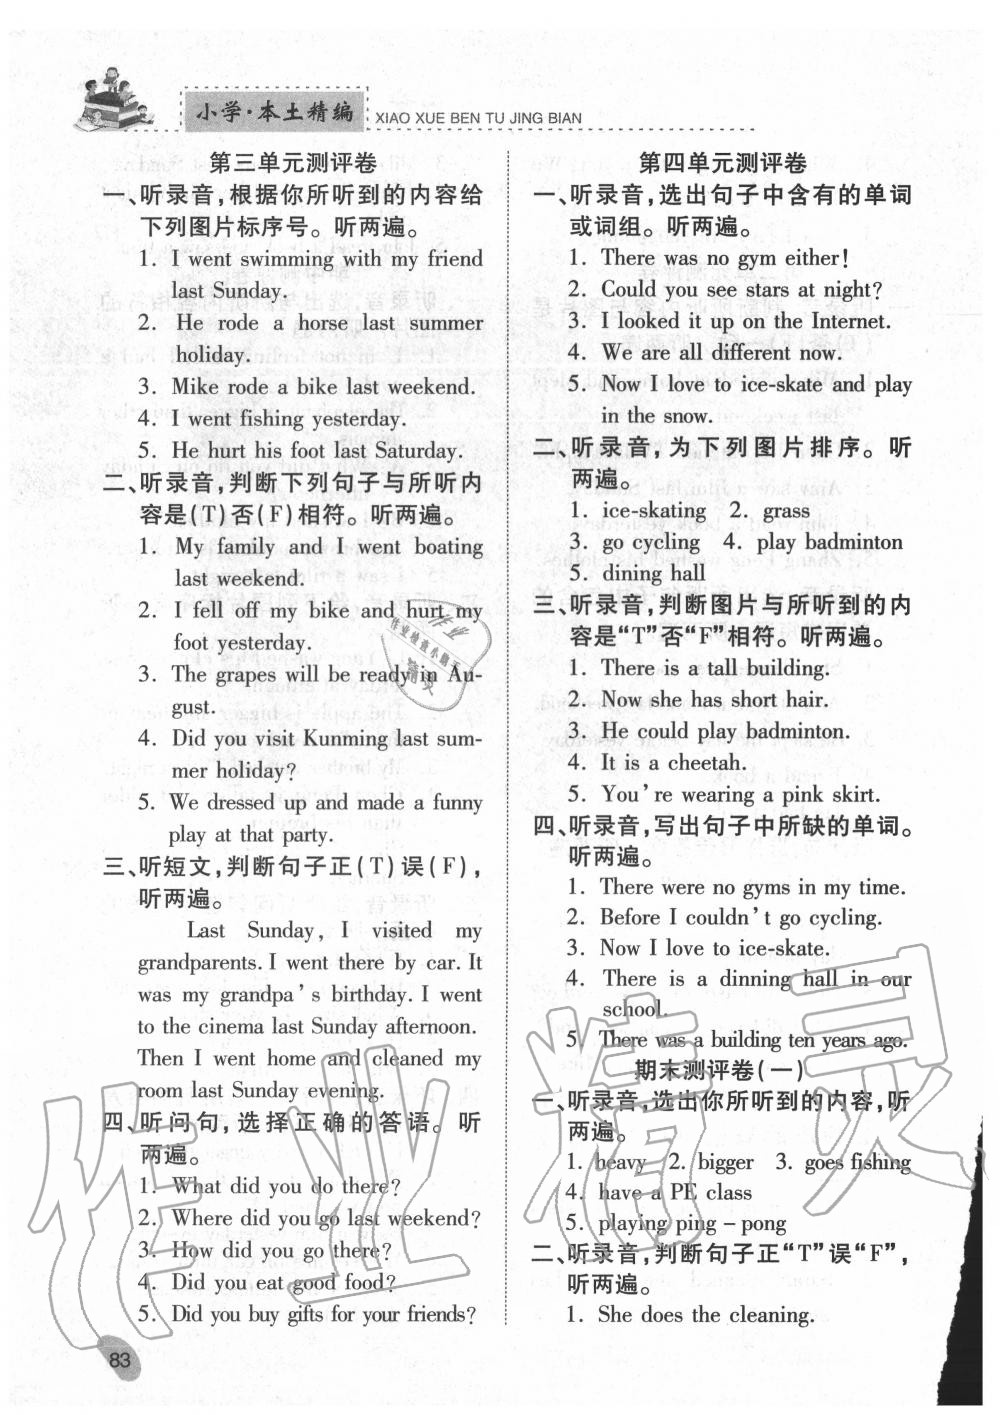 小学·本土精编
XIAO XUE BEN TU JING BIAN
第三单元测评卷
一、听录音,根据你所听到的内容给
下列图片标序号。听两遍。
1. I went swimming with my friend
last Sunday.
2. He rode a horse last summer
holiday.
3. Mike rode a bike last weekend.
4. I went fishing yesterday.
5. He hurt his foot last Saturday.
二、听录音,判断下列句子与所听内
容是(T)否(F)相符。听两遍。
1. My family and I went boating
last weekend.
2. I fell off my bike and hurt my
foot yesterday.
3. The grapes will be ready in Au-
gust.
4. Did you visit Kunming last sum-
mer holiday?
5. We dressed up and made a funny
play at that party.
三、听短文,判断句子正(T)误(F),
听两遍。
Last Sunday, I visited my
grandparents. I went there by car. It
was my grandpa's birthday. I went
to the cinema last Sunday afternoon.
Then I went home and cleaned my
room last Sunday evening.
四、听问句,选择正确的答语。听
两遍。
1. What did you do there?
2. Where did you go last weekend?
3. How did you go there?
4. Did you eat good food?
5. Did you buy gifts for your friends?
83
第四单元测评卷
一、听录音,选出句子中含有的单词
或词组。听两遍。
1. There was no gym either!
2. Could you see stars at night?
3. I looked it up on the Internet.
4. We are all different now.
5. Now I love to ice-skate and play
in the snow.
二、听录音,为下列图片排序。听
两遍。
1. ice-skating 2. grass
3. go cycling 4. play badminton
5. dining hall
三、听录音,判断图片与所听到的内
容是“T”否“F”相符。听两遍。
1. There is a tall building.
2. Now she has short hair.
3. He could play badminton.
4. It is a cheetah.
5. You're wearing a pink skirt.
四、听录音,写出句子中所缺的单词。
听两遍。
1. There were no gyms in my time.
2. Before I couldn't go cycling.
3. Now I love to ice-skate.
4. There is a dinning hall in our
school.
5. There was a building ten years ago.
期末测评卷(一)
一、听录音,选出你所听到的内容,听
两遍。
1. heavy 2. bigger 3. goes fishing
4. have a PE class
5. playing ping-pong
二、听录音,判断句子正“T”误“F”,
听两遍。
1. She does the cleaning.
作业精灵